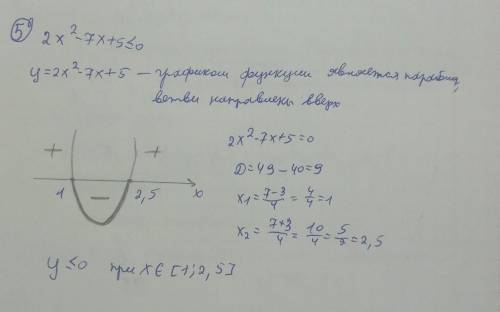 5)
2x²-7x+5≤0
y=2x²-7x+5 — графиком функции является парабола,
ветви направлены вверх
2x²-7x+5=0
D=49-40=9
x1=\frac{7-3}{4}=\frac{4}{4}=1
x2=\frac{7+3}{4}=\frac{10}{4}=\frac{5}{2}=2,5
+ +
1 – 2,5 x
y≤0 при x∈[1;2,5]